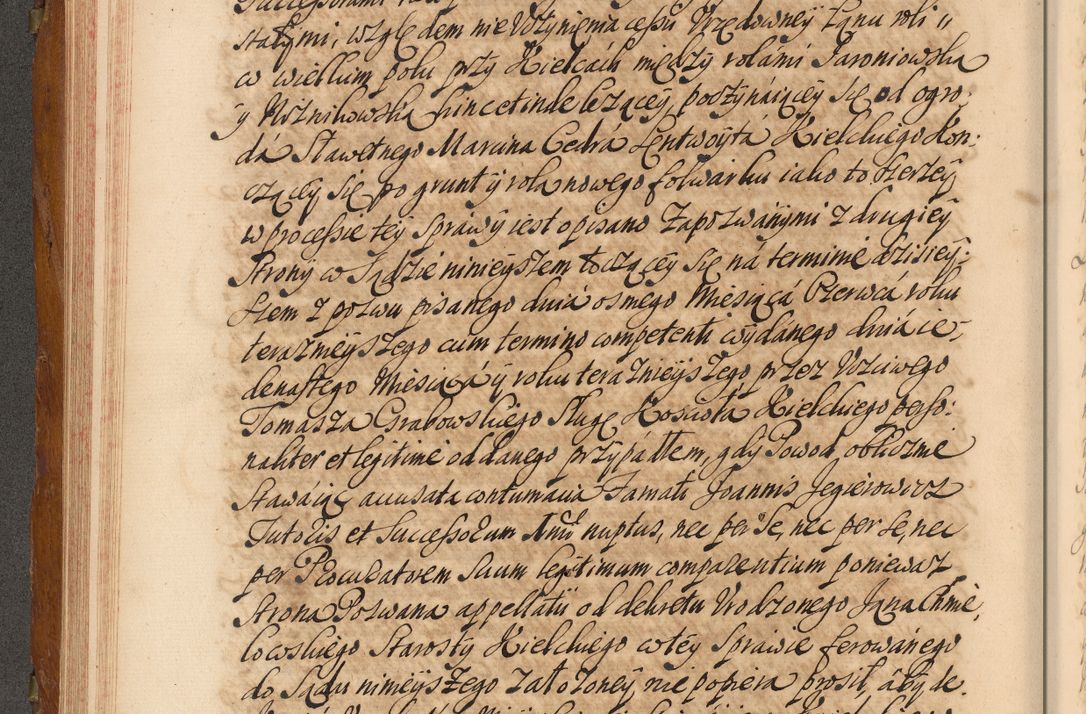 stałymi, względem nie Uczynienia cessii Urzędowney Łanu roli
w wielkum polu przy Kielcách między rolámi Jaroniowską
y Woznikowską hinc et inde lezącey, poczynáiącey się od ogro-
dá Sławetnego Marcina Cedrá Lentwoytá Kielckiego Kon:
czącey się po grunt y rola nowego folwarku iako to szerzey
w processie tey sprawy iest opisano Zapozwánymi z drugiey
strony w Sądzie ninieyszem toczącey się ná terminie dzisiey:
szem z pozwu pisanego dniá osmego Miesiącá Czerwcá roku
teraznieyszego cum termino competenti wydanego dniá ie-
denastego Miesiącá y roku teraznieyszego, przez Uczciwego
Tomasza Grabowskiego Sługę Koscioła Kielckiego perso:
naliter et legitime oddanego przypádłem, gdy Powod oblicznie
stawáiąc accusata contumacia Famati Joannis Jegierowicz
Tutoris et Successorum nuptus, nec per se, nec per se, nec
per Procuratorem suum legitimum comparentium poniewaz
strona Pozwana appellatii od dekretu Urodzonego Jana Chmie,
lowskiego Starosty Kielckiego w tey sprawie ferowánego
do Sądu ninieyszego założoney nie popiera prosił, áby de-